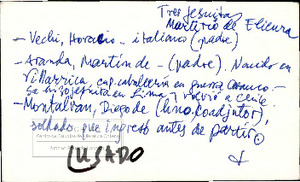 Tres jesuitas
Martirio de Elicura
- Vechi, Horacio - italiano (padre)
- Aranda, Martín de - (padre). Nacido en
Villarrica, cap. caballería en guerra Arauco -
se hizo jesuita en Lima y volvió a Chile.
- Montalván, Diego de (hno. coadjutor),
soldado que ingresó antes de partir
USADO